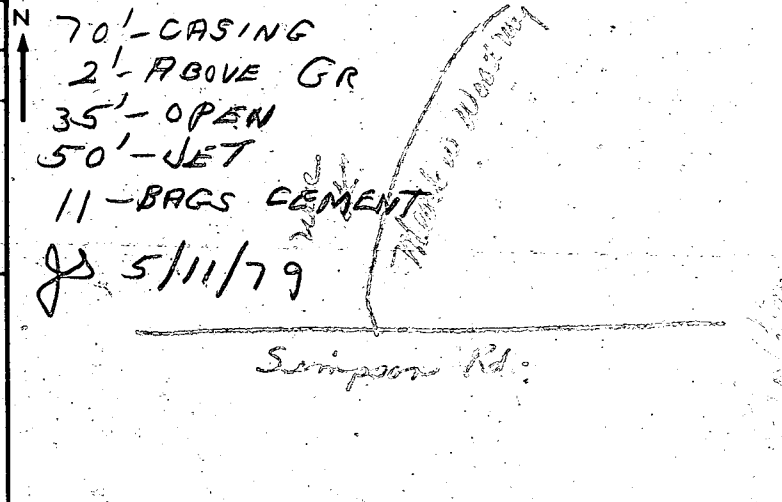 N
70'-CASING
2'-ABOVE GR
35'-OPEN
50'-JET
11-BAGS CEMENT
JS 5/11/79
Simpson Rd.